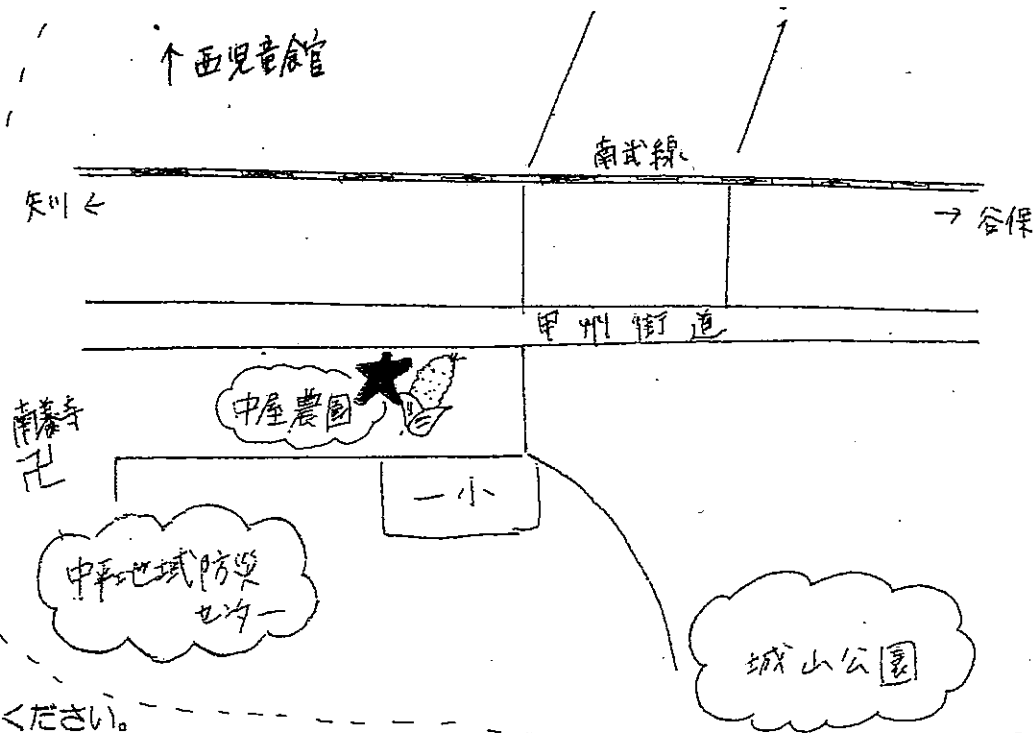 ↑西児童館
南武線
矢川←
→谷保
甲州街道
中屋農園
南養寺
卍
一小
中平地域防災
センター
城山公園
ください。